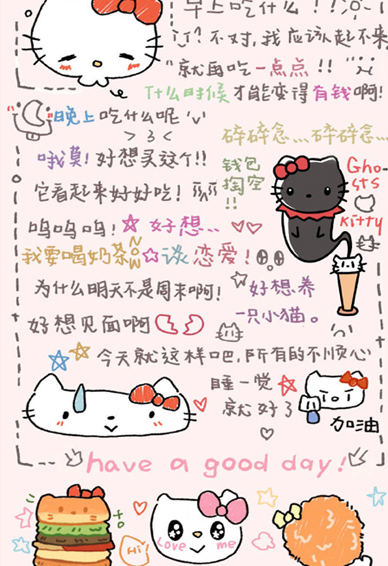 早上吃什么！！
不对，我应该起不来
"就再吃一点点！！"
什么时候才能变得有钱啊！
晚上吃什么呢 'v'
> 3 <
碎碎念...碎碎念...
哦莫！好想买这个！！
钱包
掏空
!!
Gho
sts
kitty
它看起来好好吃！
呜呜呜！好想..
我要喝奶茶NOW
谈恋爱！
为什么明天不是周末啊！
好想养
一只小猫。
好想见面啊
今天就这样吧，所有的不顺心
睡一觉
就好了
加油
have a good day!
Hi!
Love me